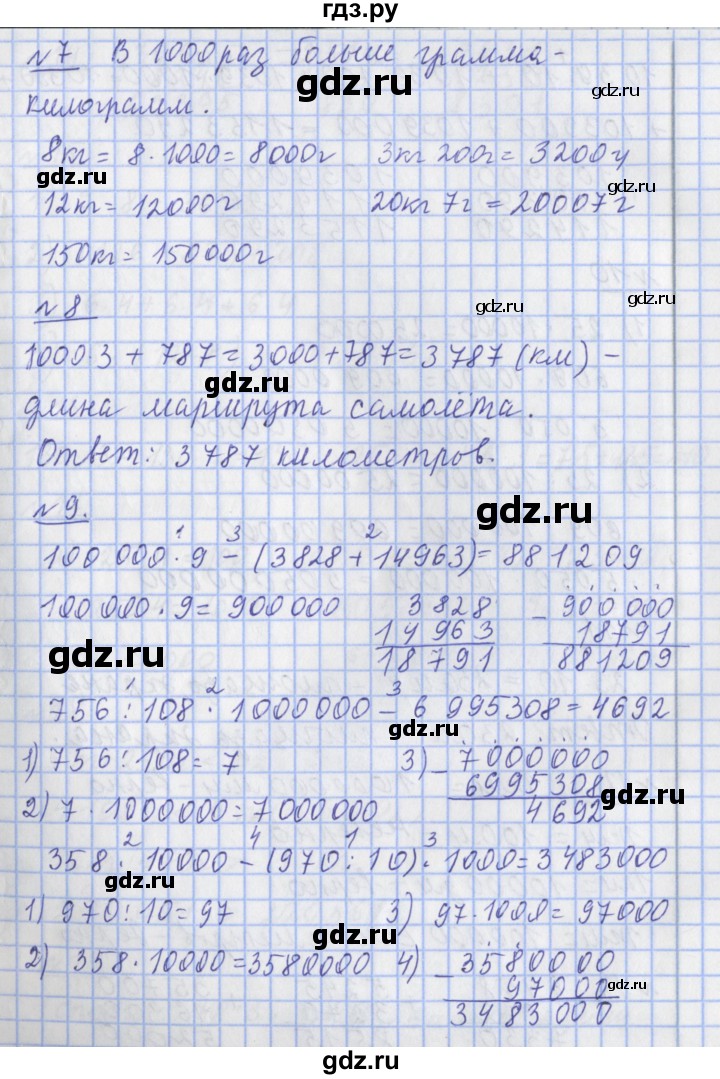 гдз.ру
№7 В 1000 раз больше грамма -
gdz.ru
gdz.ru
килограмм.
8кг = 8·1000 = 8000г 3кг 200г = 3200г
gdz.ru
gdz.ru
12кг = 12000г 20кг 7г = 20007г
150кг = 150000г
№8
gdz.ru
gdz.ru
1000·3 + 787 = 3000 + 787 = 3787 (км) -
gdz.ru
длина маршрута самолёта.
Ответ: 3787 километров.
№9.
gdz.ru
1 3 2
100 000 · 9 - (3828 + 14963) = 881209
100 000 · 9 = 900 000 3828 - 900 000
14 963 18791
gdz.ru
18791 881209
1 2 3
756 : 108 · 1000000 - 6 995308 = 4692
gdz.ru
1) 756 : 108 = 7 3) - 7000000
6995308
gdz.ru
2) 7 · 1000000 = 7000000 4692
2 4 1 3
358 · 10000 - (970 : 10) · 1000 = 3483000
gdz.ru
1) 970 : 10 = 97 3) 97·1000 = 97000
gdz.ru
2) 358 · 10000 = 3580000 4) - 3580000
97000
gdz.ru
3483000
gdz.ru